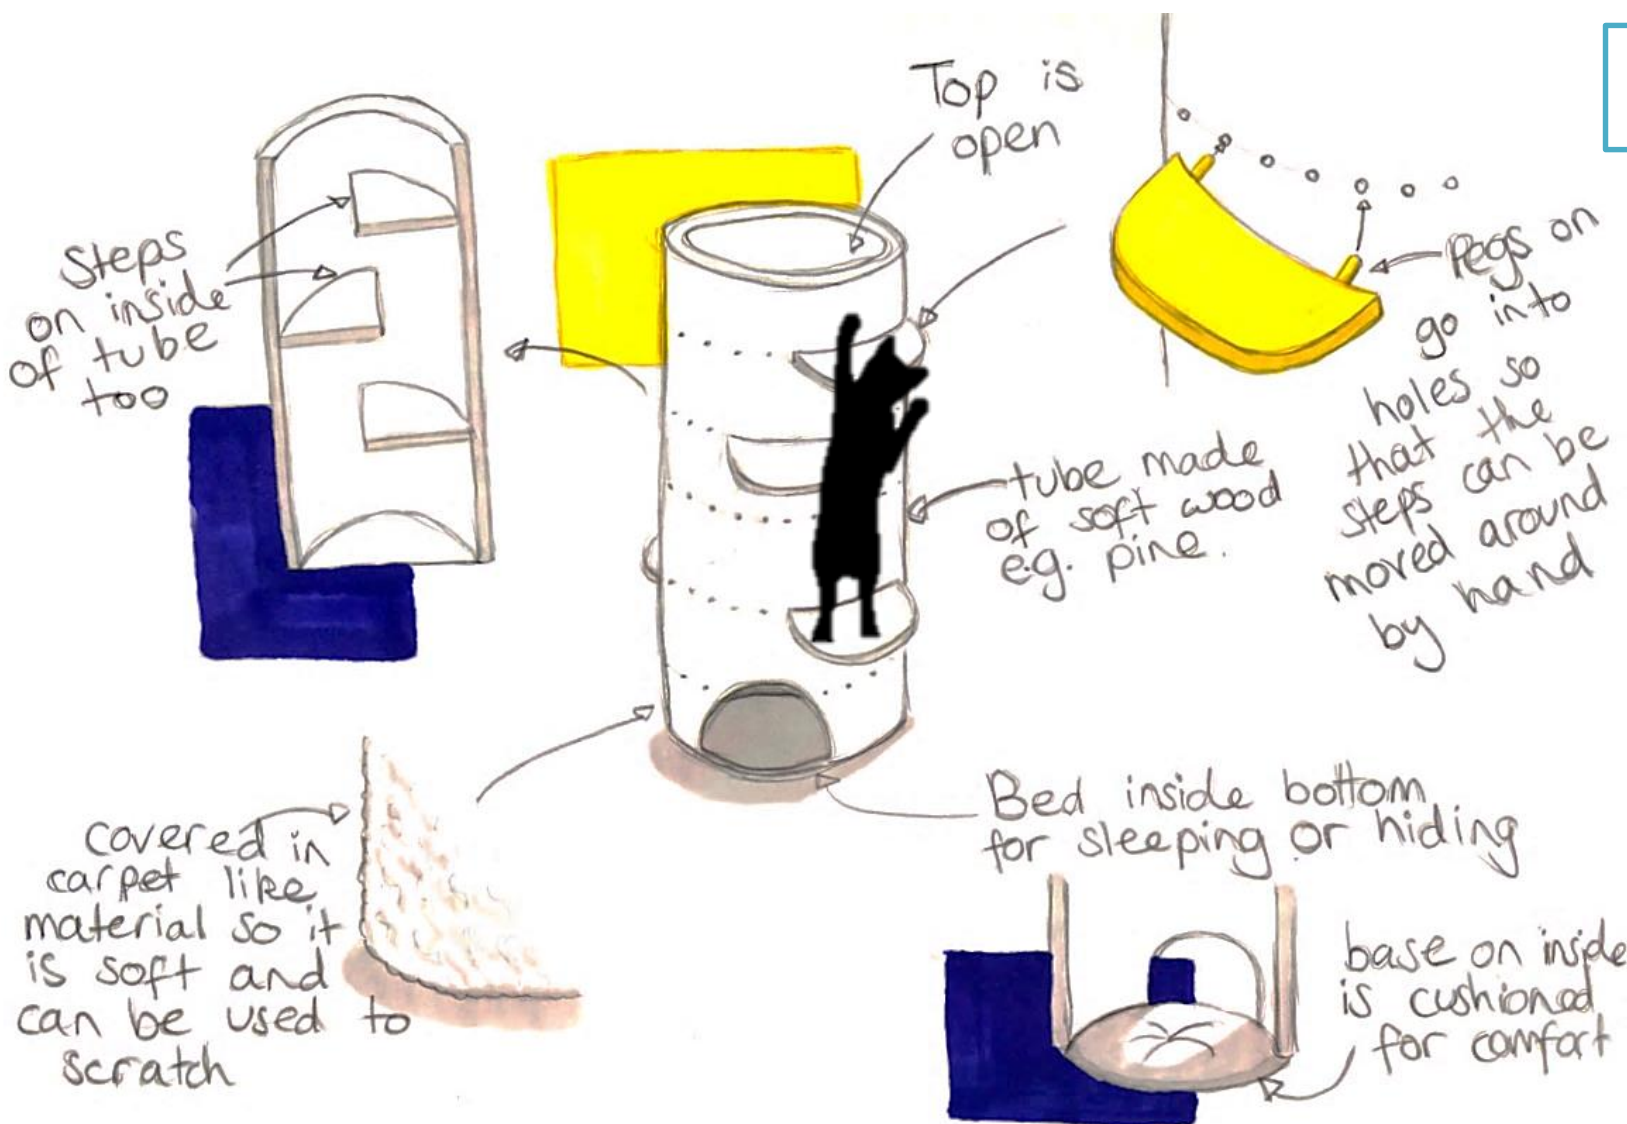 Top is
open
Steps
on inside
of tube
too
Pegs on
go into
holes so
that the
steps can be
moved around
by hand
tube made
of soft wood
e.g. pine.
Bed inside bottom
for sleeping or hiding
covered in
carpet like
material so it
is soft and
can be used to
scratch
base on inside
is cushioned
for comfort